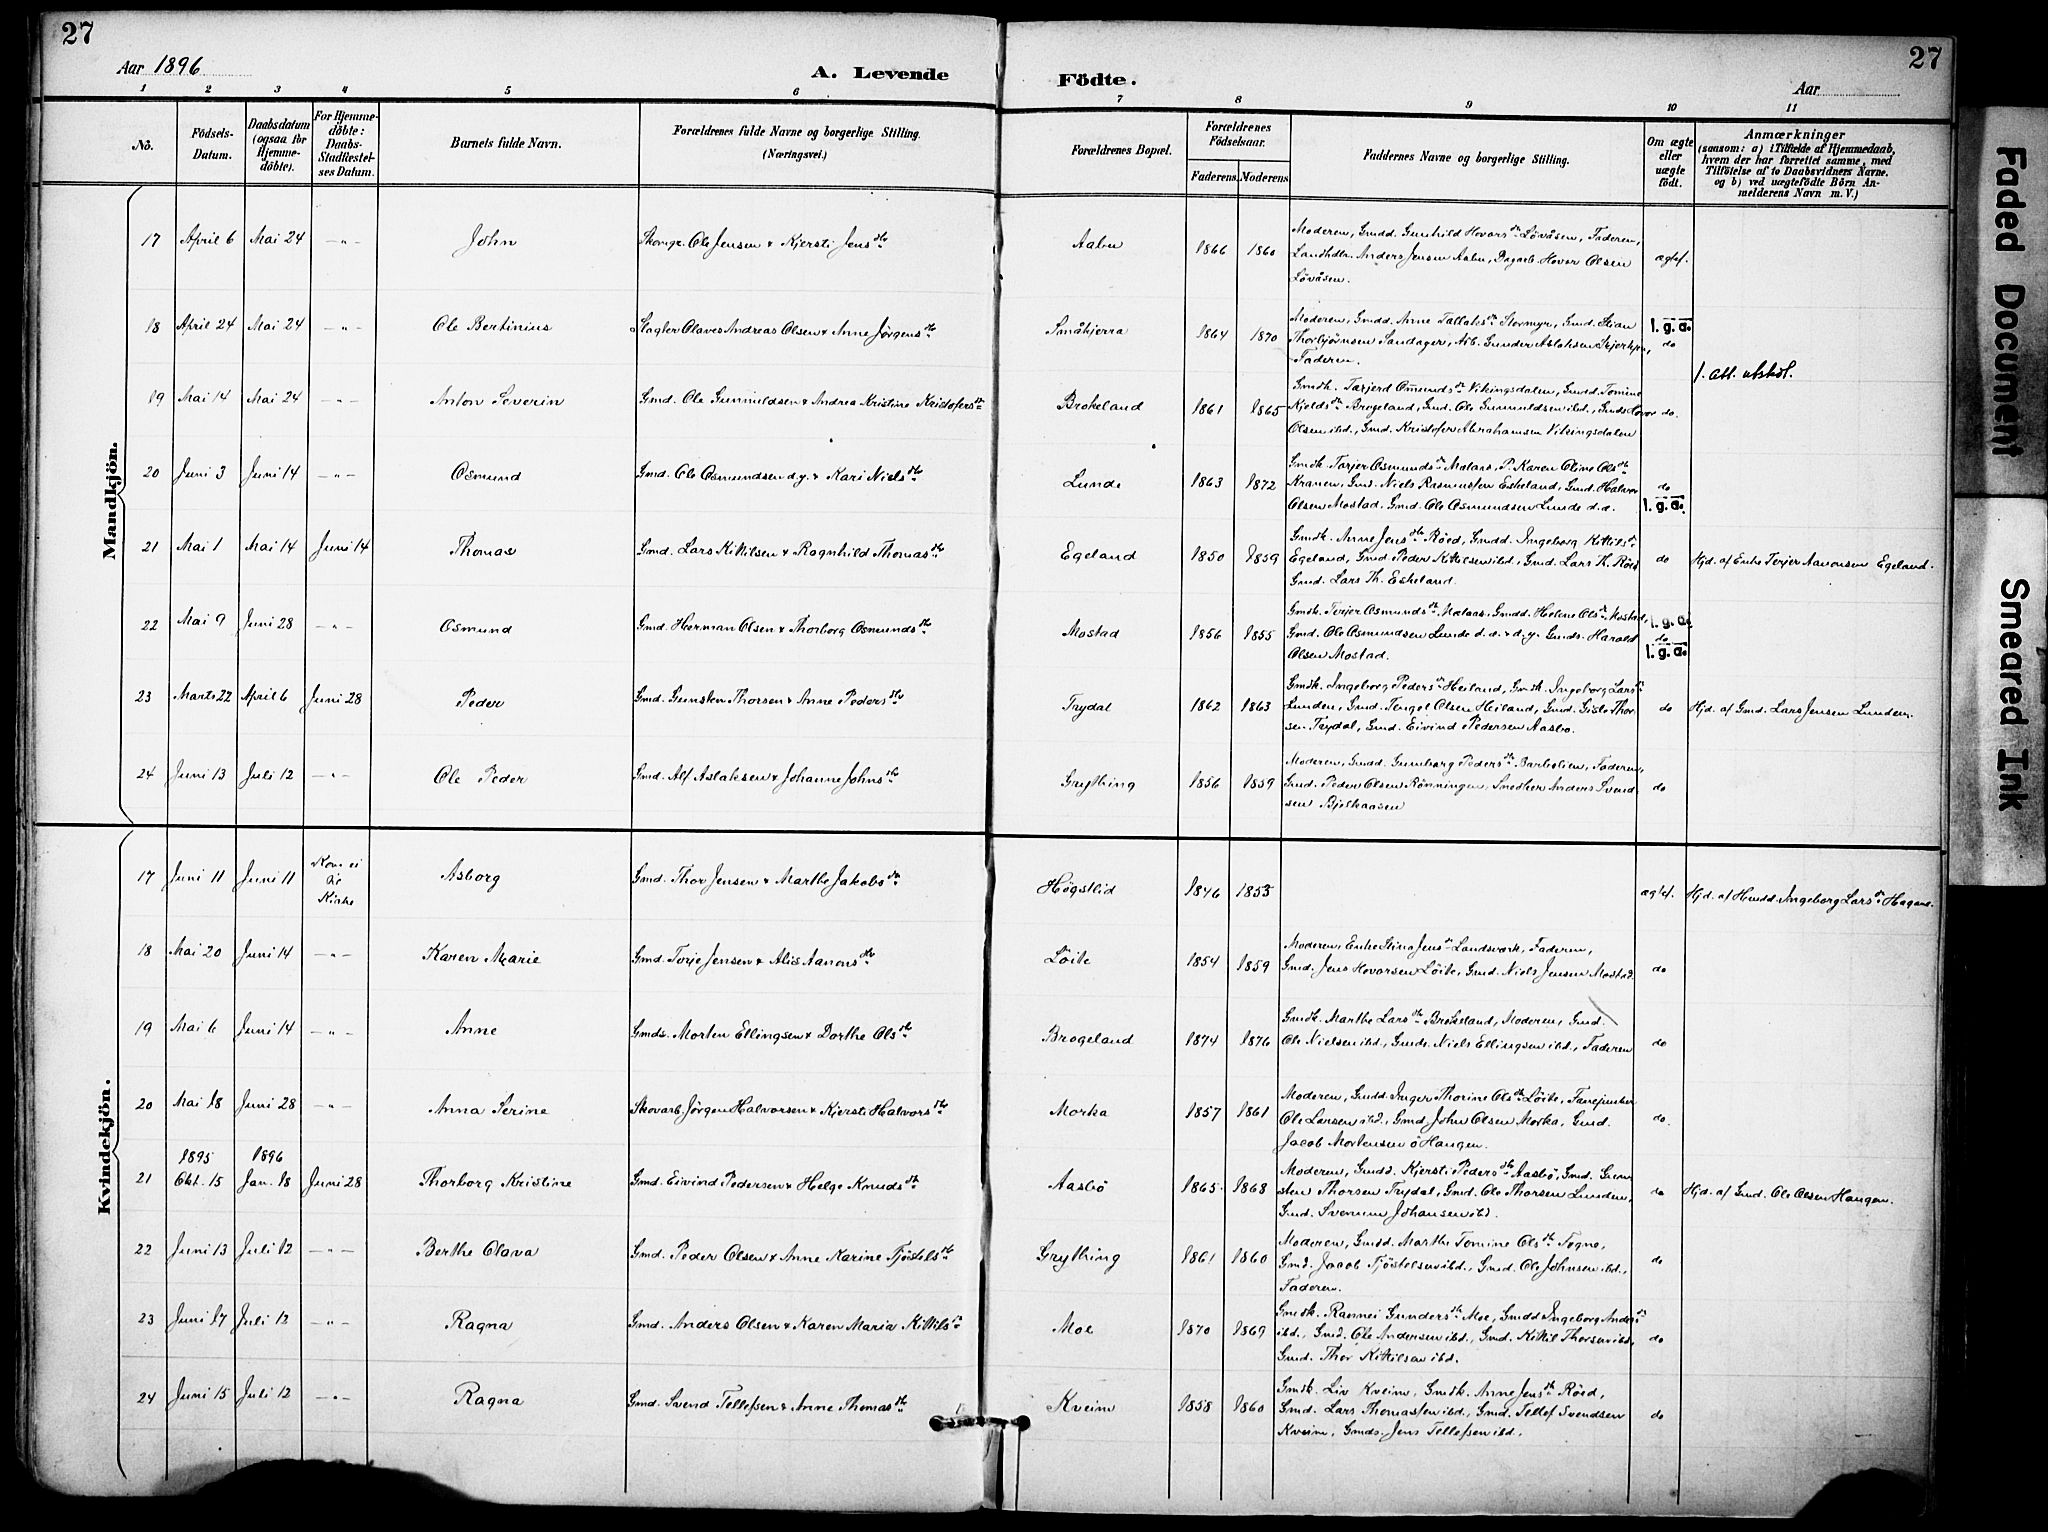 27
27
Aar 1896
A. Levende
Födte.
Aar
1 2 3 4 5 6 7 8 9 10 11
No.
Födsels-Datum.
Daabsdatum (ogsaa for Hjemme-döbte).
For Hjemme-döbte: Daabs-Stadfæstel-ses Datum.
Barnets fulde Navn.
Forældrenes fulde Navne og borgerlige Stilling. (Næringsvei.)
Forældrenes Bopæl.
Forældrenes Födselsaar.
Faderens. Moderens.
Faddernes Navne og borgerlige Stilling.
Om ægte eller uægte födt.
Anmærkninger
(saasom: a) i Tilfælde af Hjemmedaab,
hvem der har forrettet samme, med
Tilföielse af to Daabsvidners Navne.
og b) ved uægtefödte Börn An-
melderens Navn m. V.)
Mandkjön.
17 April 6 Mai 24 -"- John Skovgr. Ole Jensen & Kjersti Jensdtr Aabu 1866 1860
Moderen, Gmdd. Gunhild Hovorsdtr Lövåsen, Faderen,
Landhdlr. Anders Jensen Aabu, Dagarb. Hovor Olsen
Lövåsen.
ægtef.
18 April 24 Mai 24 -"- Ole Bertinius Slagter Olaves Andreas Olsen & Anne Jörgensdtr Småkjerra 1864 1870
Moderen, Gmdd. Anne Tallaksdtr Stormyr, Gmd. Stian
Thorbjörnsen Sandager, Arb. Gunder Aslaksen
Faderen.
l. g. a.
do
1. att. utskol.
19 Mai 14 Mai 24 -"- Anton Severin Gmd. Ole Gunnuldsen & Andrea Kristine Kristofersdtr Brokeland 1861 1865
Gmdk. Tarjerd Omundsdtr Vikingsdalen, Gmdd. Tomine
Kjeldsdtr Brogeland, Gmd. Ole Gunnuldsen ibd., Gmds Hovor
Olsen ibd., Gmd. Kristofer Abrahamsen Vikingsdalen
do.
20 Juni 3 Juni 14 -"- Osmund Gmd. Ole Osmundsen d.y. & Kari Nielsdtr Lunde 1863 1872
Gmdk. Tarjer Osmundsdtr Malaas, P. Karen Oline Olsdtr
Kranen, Gmd. Niels Rasmussen Eskeland, Gmd. Halvor
Olsen Mostad. Gmd. Ole Osmundsen Lunde d.æ.
do
l. g. a.
21 Mai 1 Mai 14 Juni 14 Thomas Gmd. Lars Kittilsen & Ragnhild Thomasdtr Egeland 1850 1859
Gmdk. Anne Jensdtr Röed, Gmdd. Ingeborg Kittilsdtr
Egeland, Gmd Peder Kittelsen ibd., Gmd. Lars Th. Röed
Gmd. Lars Th. Eskeland.
do
Hjd. af Enke Terjer Aanonsen Egeland.
22 Mai 9 Juni 28 -"- Osmund Gmd. Herman Olsen & Thorborg Osmundsdtr Mostad 1856 1855
Gmdk. Terjer Osmundsdtr Malaas, Gmdd. Helene Olsdtr Mostad,
Gmd. Ole Osmundsen Lunde d.æ. & d.y. Gmds. Harald
Olsen Mostad.
l. g. a.
do
l. g. a.
23 Marts 22 April 6 Juni 28 Peder Gmd. Gunsten Thorsen & Anne Pedersdtr Trydal 1862 1863
Gmdk. Ingeborg Pedersdtr Heiland, Gmdk. Ingeborg Larsdtr
Lunden, Gmd. Tengel Olsen Heiland, Gmd. Gisle Thor-
sen Trydal, Gmd. Eivind Pedersen Aasbö.
do
Hjd. af Gmd. Lars Jensen Lunden.
24 Juni 13 Juli 12 -"- Ole Peder Gmd. Alf Aslaksen & Johanne Johnsdtr Grytting 1856 1859
Moderen, Gmdd. Gunborg Pedersdtr Barbolien, Faderen,
Gmd. Peder Olsen Rönningen, Snedker Anders Svend-
sen Bjelkaasen
do
Kvindekjön.
17 Juni 11 Juni 11 Kom ei til Kirke Asborg Gmd. Thor Jensen & Marthe Jakobsdtr Högstlid 1846 1853
ægtef.
Hjd. af Hmdd. Ingeborg Larsdtr Hagane.
18 Mai 20 Juni 14 -"- Karen Marie Gmd. Terje Jensen & Alis Aanonsdtr Löite 1854 1859
Moderen, Enke Stina Jensdtr Landsværk, Faderen,
Gmd. Jens Hovorsen Löite, Gmd. Niels Jensen Mostad.
do
19 Mai 6 Juni 14 -"- Anne Gmds. Morten Ellingsen & Dorthe Olsdtr Brogeland 1874 1876
Gmdk. Marthe Larsdtr Brokeland, Moderen, Gmd.
Ole Nielsen ibd., Gmds. Niels Ellingsen ibd., Faderen
do
20 Mai 18 Juni 28 -"- Anna Serine Skovarb. Jörgen Halvorsen & Kjersti Halvorsdtr Morka 1857 1861
Moderen, Gmdd Inger Thorine Olsdtr Löite, Fanejunker
Ole Larsen ibd., Gmd John Olsen Morka, Gmd.
Jacob Mortensen ö Haugen.
do.
21 1895 Okt. 15 1896 Jan. 18 Juni 28 Thorborg Kristine Gmd. Eivind Pedersen & Helge Knudsdtr Aasbö 1865 1868
Moderen, Gmdd. Kjersti Pedersdtr Aasbö, Gmd. Gun-
sten Thorsen Trydal, Gmd. Ole Thorsen Lunden,
Gmd. Svenum Johansen ibd.
do
Hjd. af Gmd. Ole Olsen Haugen.
22 Juni 13 Juli 12 -"- Berthe Olava Gmd. Peder Olsen & Anne Karine Tjöstelsdtr Grytting 1861 1860
Moderen, Gmdd. Marthe Tomine Olsdtr Fogne,
Gmd. Jacob Tjöstelsen ibd., Gmd. Ole Johnsen ibd.,
Faderen.
do
23 Juni 17 Juli 12 -"- Ragna Gmd. Anders Olsen & Karen Maria Kittilsdtr Moe 1870 1869
Gmdk. Rannei Gundersdtr Moe, Gmdd Ingeborg Andersdtr
ibd., Gmd. Ole Andersen ibd., Gmd. Kittil Thorsen ibd,
Gmd. Thor Kittilsen ibd.
do
24 Juni 15 Juli 12 -"- Ragna Gmd. Svend Tellefsen & Anne Thomasdtr Kveim 1858 1860
Gmdk. Liv Kveim, Gmdk. Anne Jensdtr Röed,
Gmd. Lars Thomassen ibd., Gmd. Tellef Svendsen
Kveim, Gmds. Jens Tellefsen ibd.
do
Faded Document
Smeared Ink